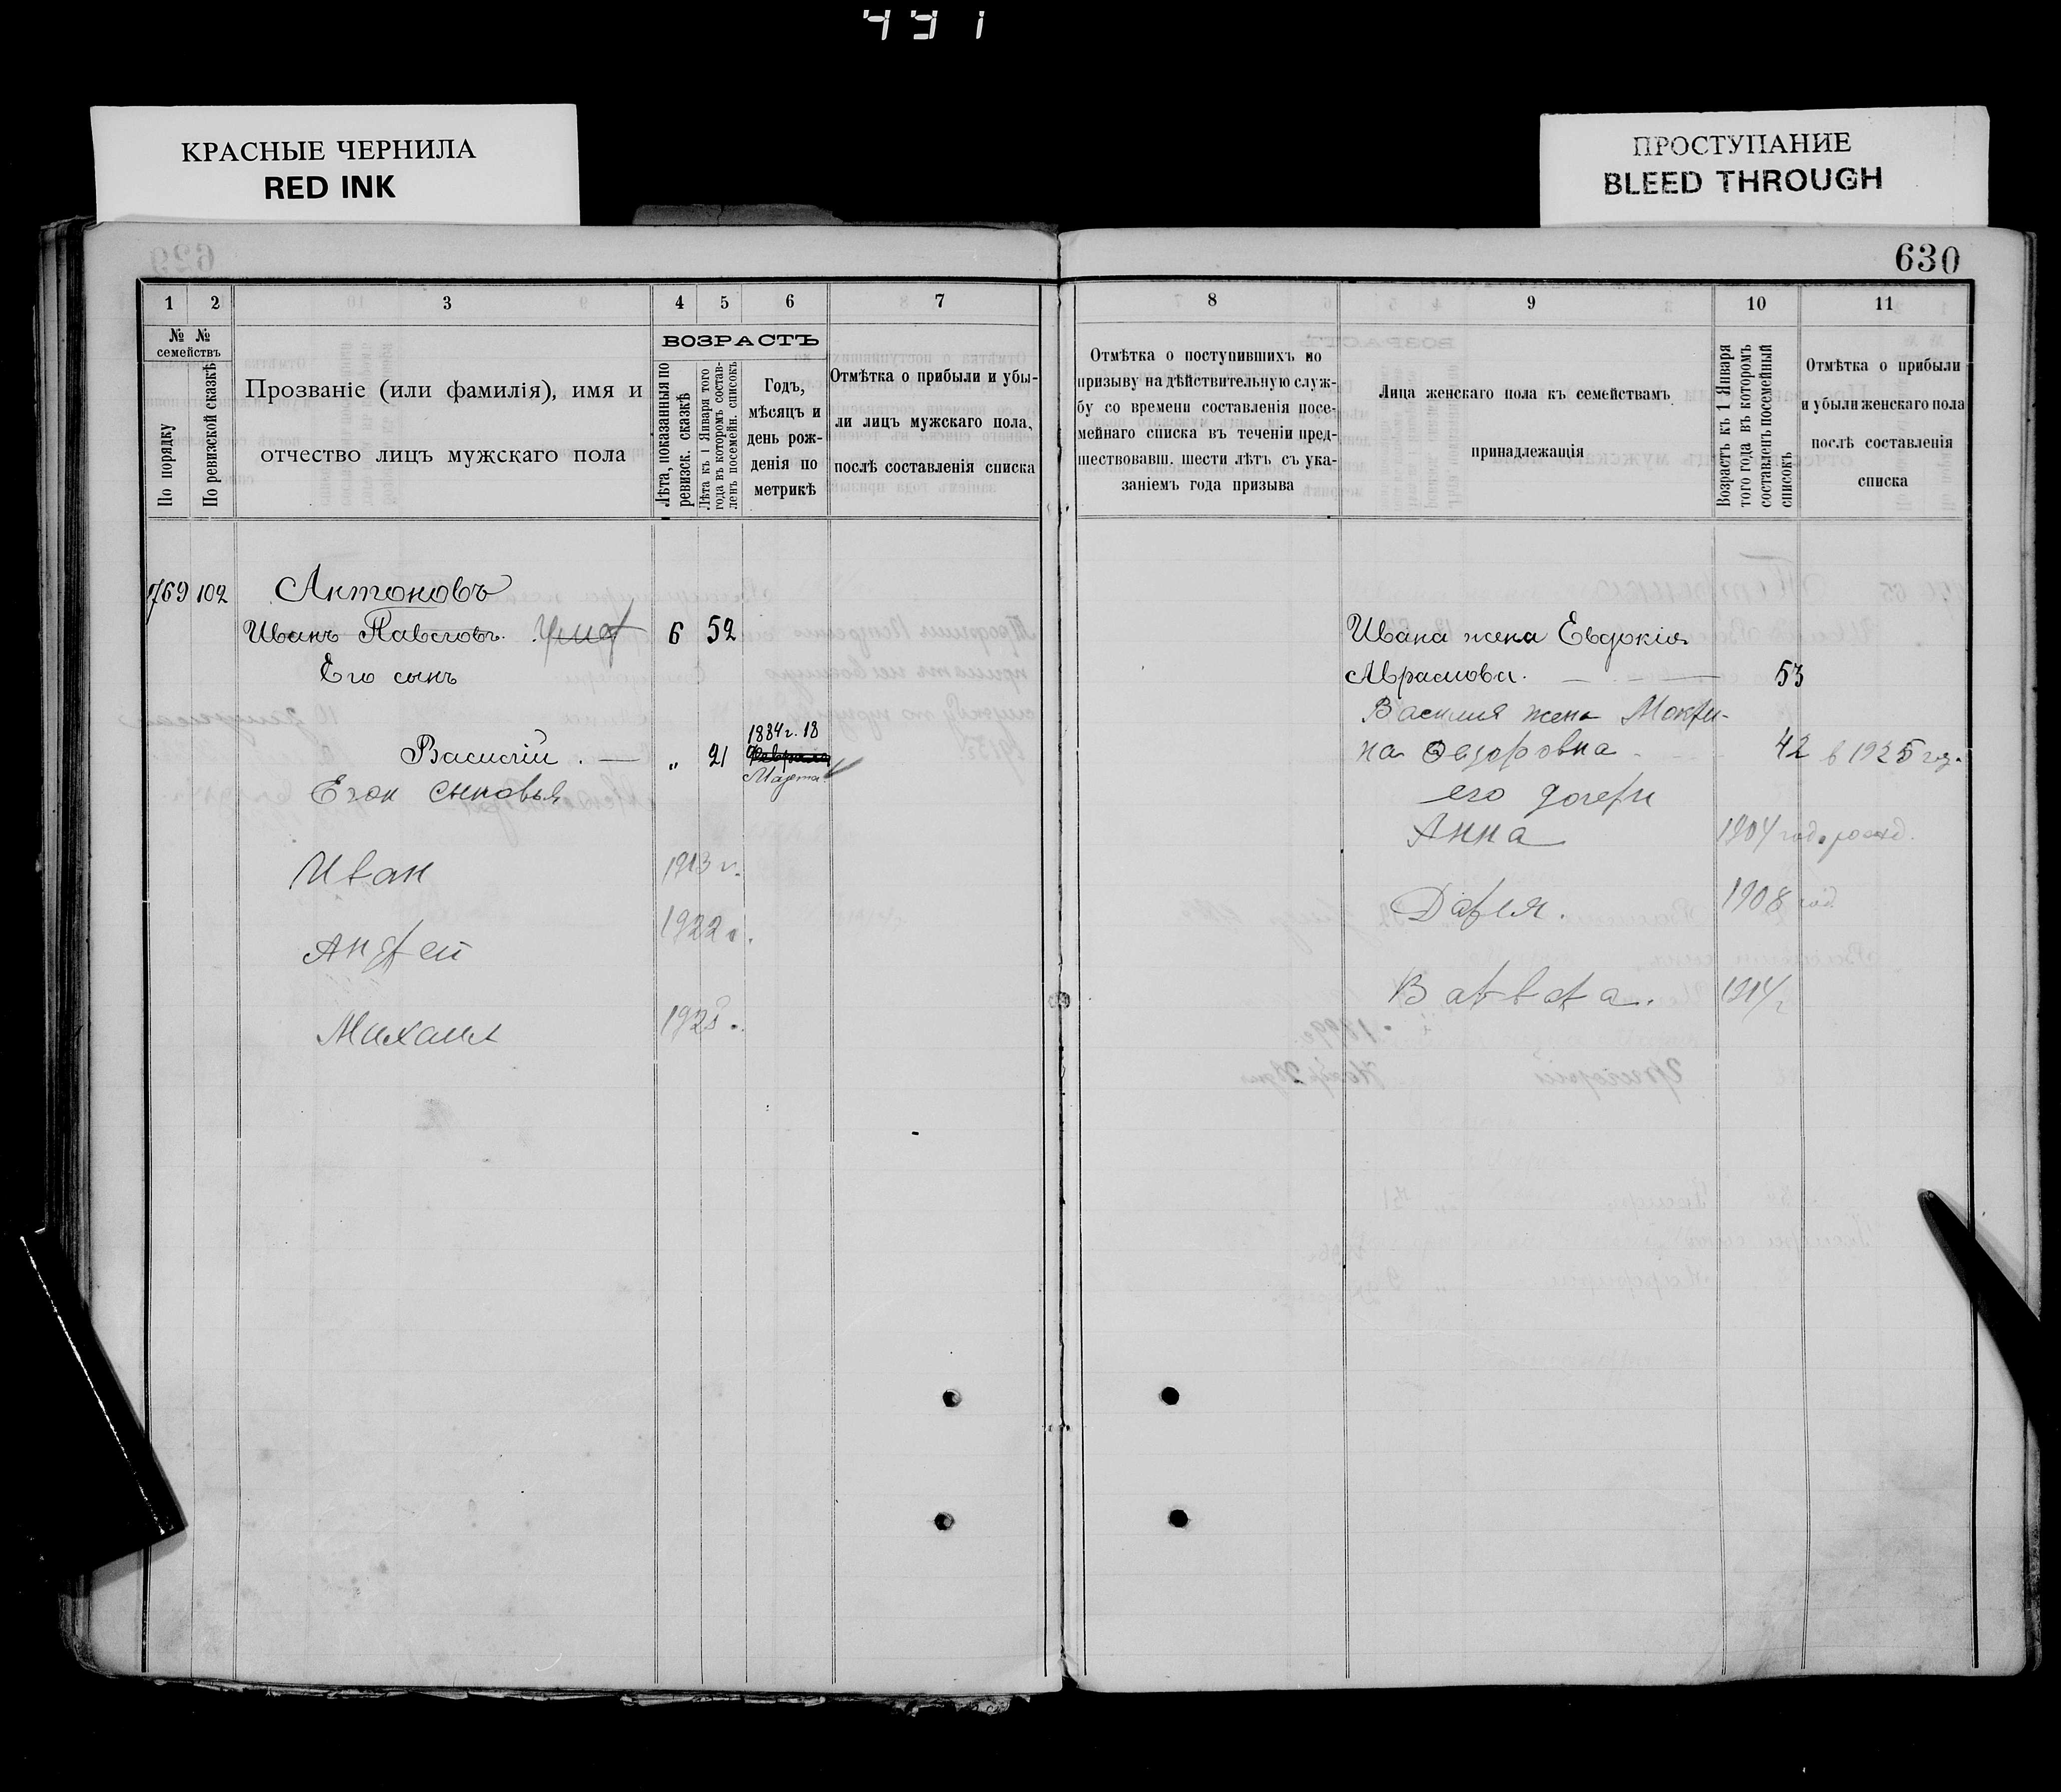 491
КРАСНЫЕ ЧЕРНИЛА
RED INK
ПРОСТУПАНИЕ
BLEED THROUGH
630
1 2 3 4 5 6 7
№ № семействъ
По порядку
По ревизской сказкѣ
Прозваніе (или фамилія), имя и
отчество лицъ мужскаго пола
ВОЗРАСТЪ
Лѣта, показанныя по
ревизск. сказкѣ
Лѣта къ 1 Января того
года въ которомъ состав-
ленъ посемейн. списокъ
Годъ,
мѣсяцъ и
день рож-
денія по
метрикѣ
Отмѣтка о прибыли и убы-
ли лицъ мужскаго пола,
послѣ составленія списка
769 102 Антоновъ
Иванъ Павловъ. умер 6 52
Его сынъ
1884 г. 18
Василій . — „ 21 Февраля
Марта
Егон сыновья
Иван 1913 г.
Андрей 1922 г.
Михаил 1925
8 9 10 11
Отмѣтка о поступившихъ по
призыву на дѣйствительную служ-
бу со времени составленія посе-
мейнаго списка въ теченіи пред-
шествовавш. шести лѣтъ съ ука-
заніемъ года призыва
Лица женскаго пола къ семействамъ
принадлежащія
Возрастъ къ 1 Января
того года въ которомъ
составленъ посемейный
списокъ
Отмѣтка о прибыли
и убыли женскаго пола
послѣ составленія
списка
Ивана жена Евдокія
Абрамова. — — 53
Василия жена Мокри-
на Федоровна 42 в 1925 год.
его дочери
Анна 1904 год. рожд.
Дарья. 1908 год
Варвара. 1914 г